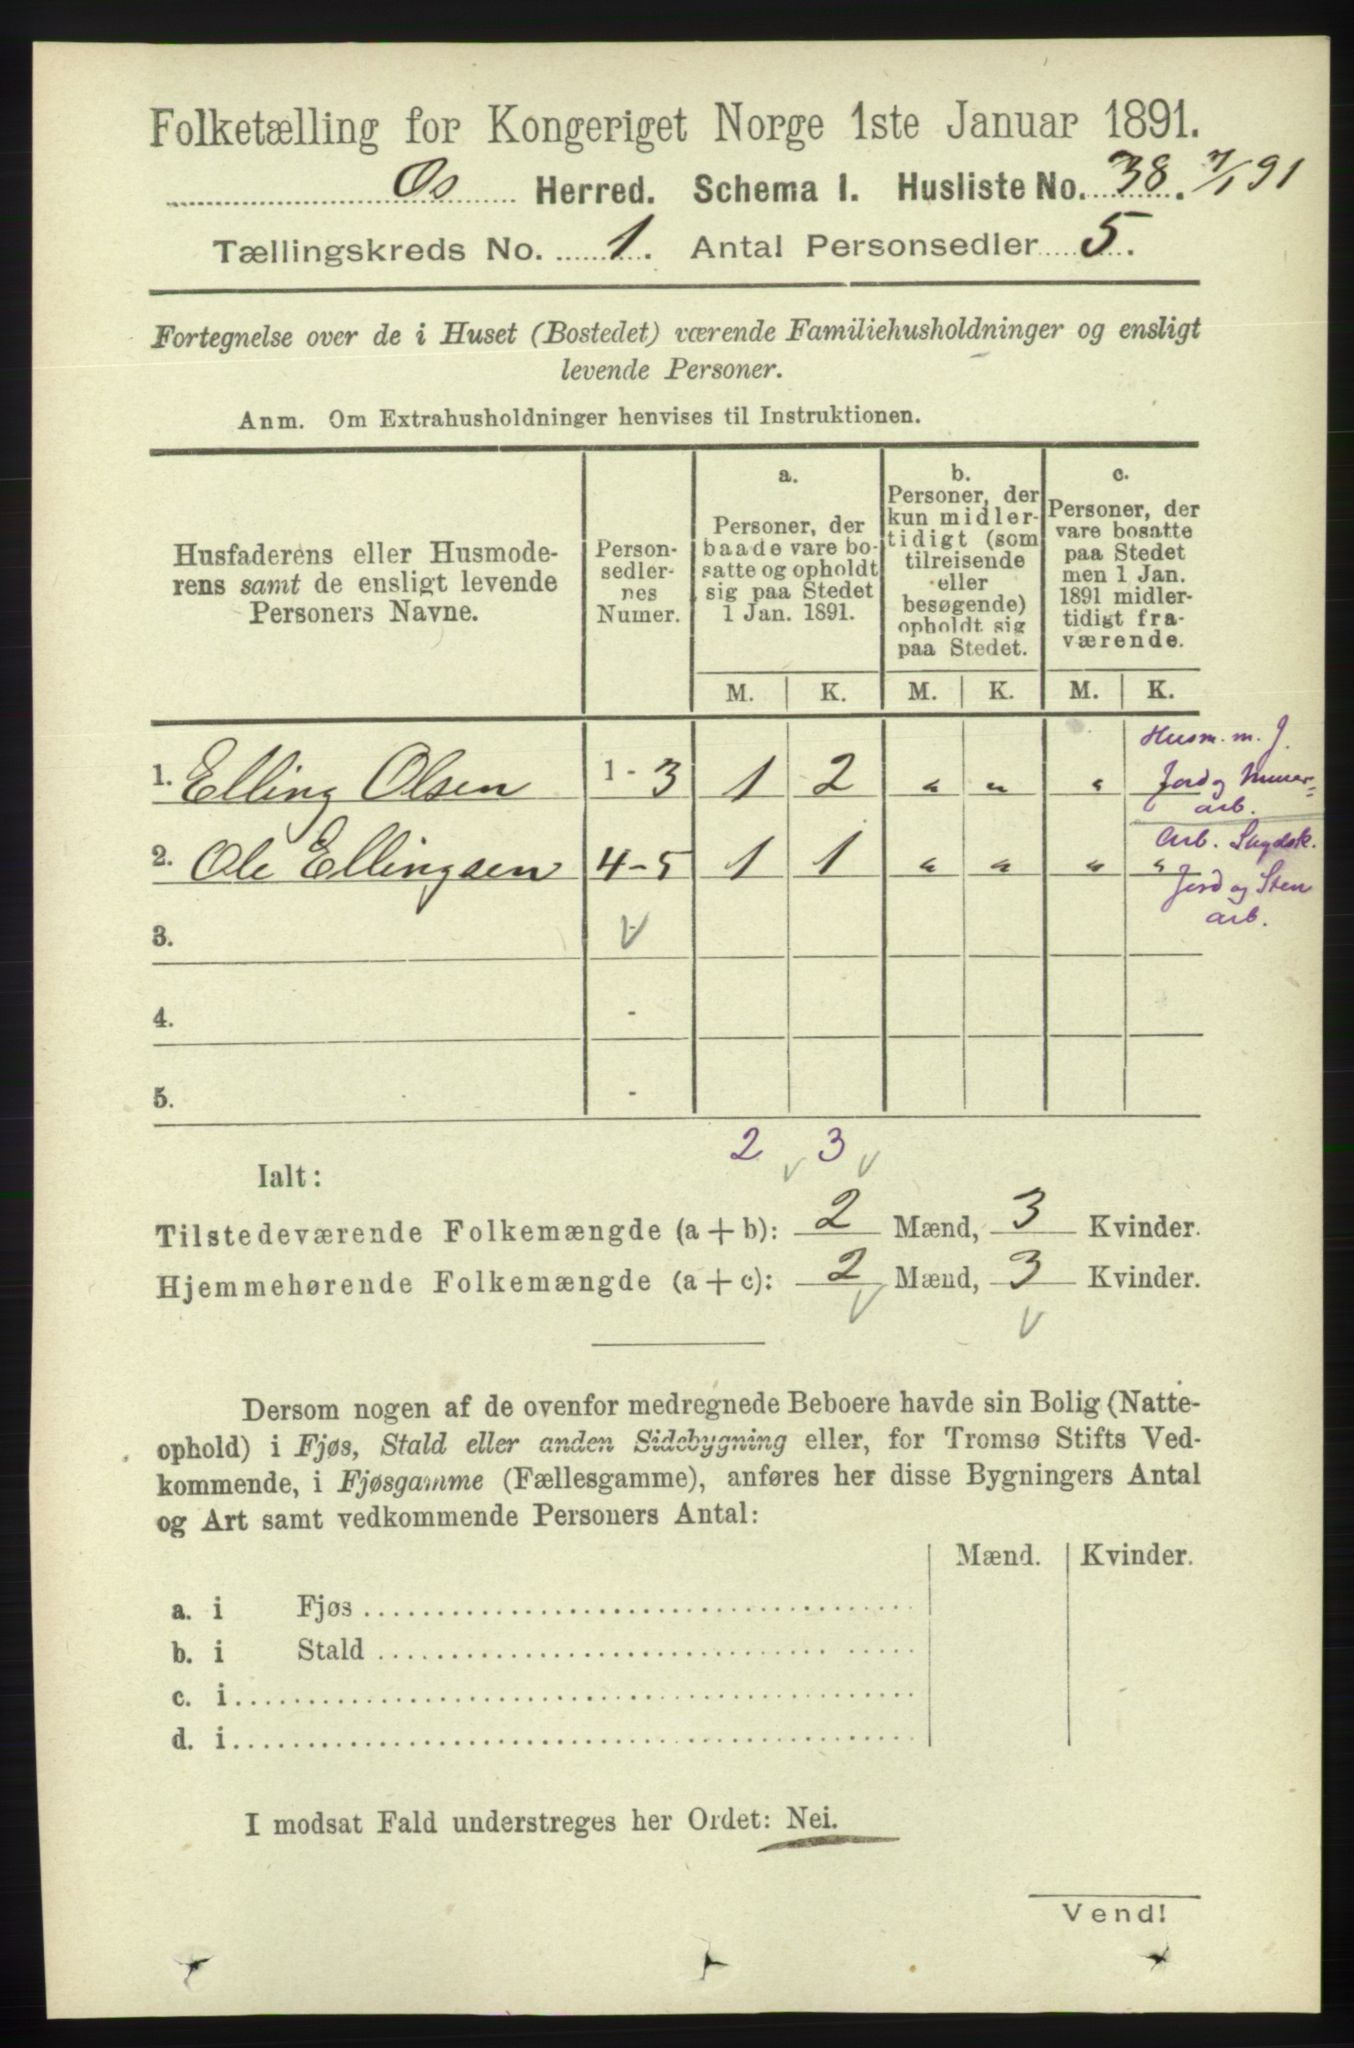 Folketælling for Kongeriget Norge 1ste Januar 1891.
Os Herred. Schema I. Husliste No. 38. 7/1 91
Tællingskreds No. 1. Antal Personsedler 5.
Fortegnelse over de i Huset (Bostedet) værende Familiehusholdninger og ensligt
levende Personer.
Anm. Om Extrahusholdninger henvises til Instruktionen.
Husfaderens eller Husmode-
rens samt de ensligt levende
Personers Navne.
Person-
sedler-
nes
Numer.
a.
Personer, der
baade vare bo-
satte og opholdt
sig paa Stedet
1 Jan. 1891.
b.
Personer, der
kun midler-
tidigt (som
tilreisende
eller
besøgende)
opholdt sig
paa Stedet.
c.
Personer, der
vare bosatte
paa Stedet
men 1 Jan.
1891 midler-
tidigt fra-
værende.
M. K. M. K. M. K.
Husm. m. J.
1. Elling Olsen 1 - 3 1 2 " " " Jord og Minear-
arb.
Arb.
2. Ole Ellingsen 4-5 1 1 " " " "
Jord og Sten
arb.
3.
4. -
5. -
2 3
Ialt:
Tilstedeværende Folkemængde (a + b): 2 Mænd, 3 Kvinder.
Hjemmehørende Folkemængde (a + c): 2 Mænd, 3 Kvinder.
Dersom nogen af de ovenfor medregnede Beboere havde sin Bolig (Natte-
ophold) i Fjøs, Stald eller anden Sidebygning eller, for Tromsø Stifts Ved-
kommende, i Fjøsgamme (Fællesgamme), anføres her disse Bygningers Antal
og Art samt vedkommende Personers Antal:
Mænd. Kvinder.
a. i Fjøs
b. i Stald
c. i
d. i
I modsat Fald understreges her Ordet: Nei.
Vend!